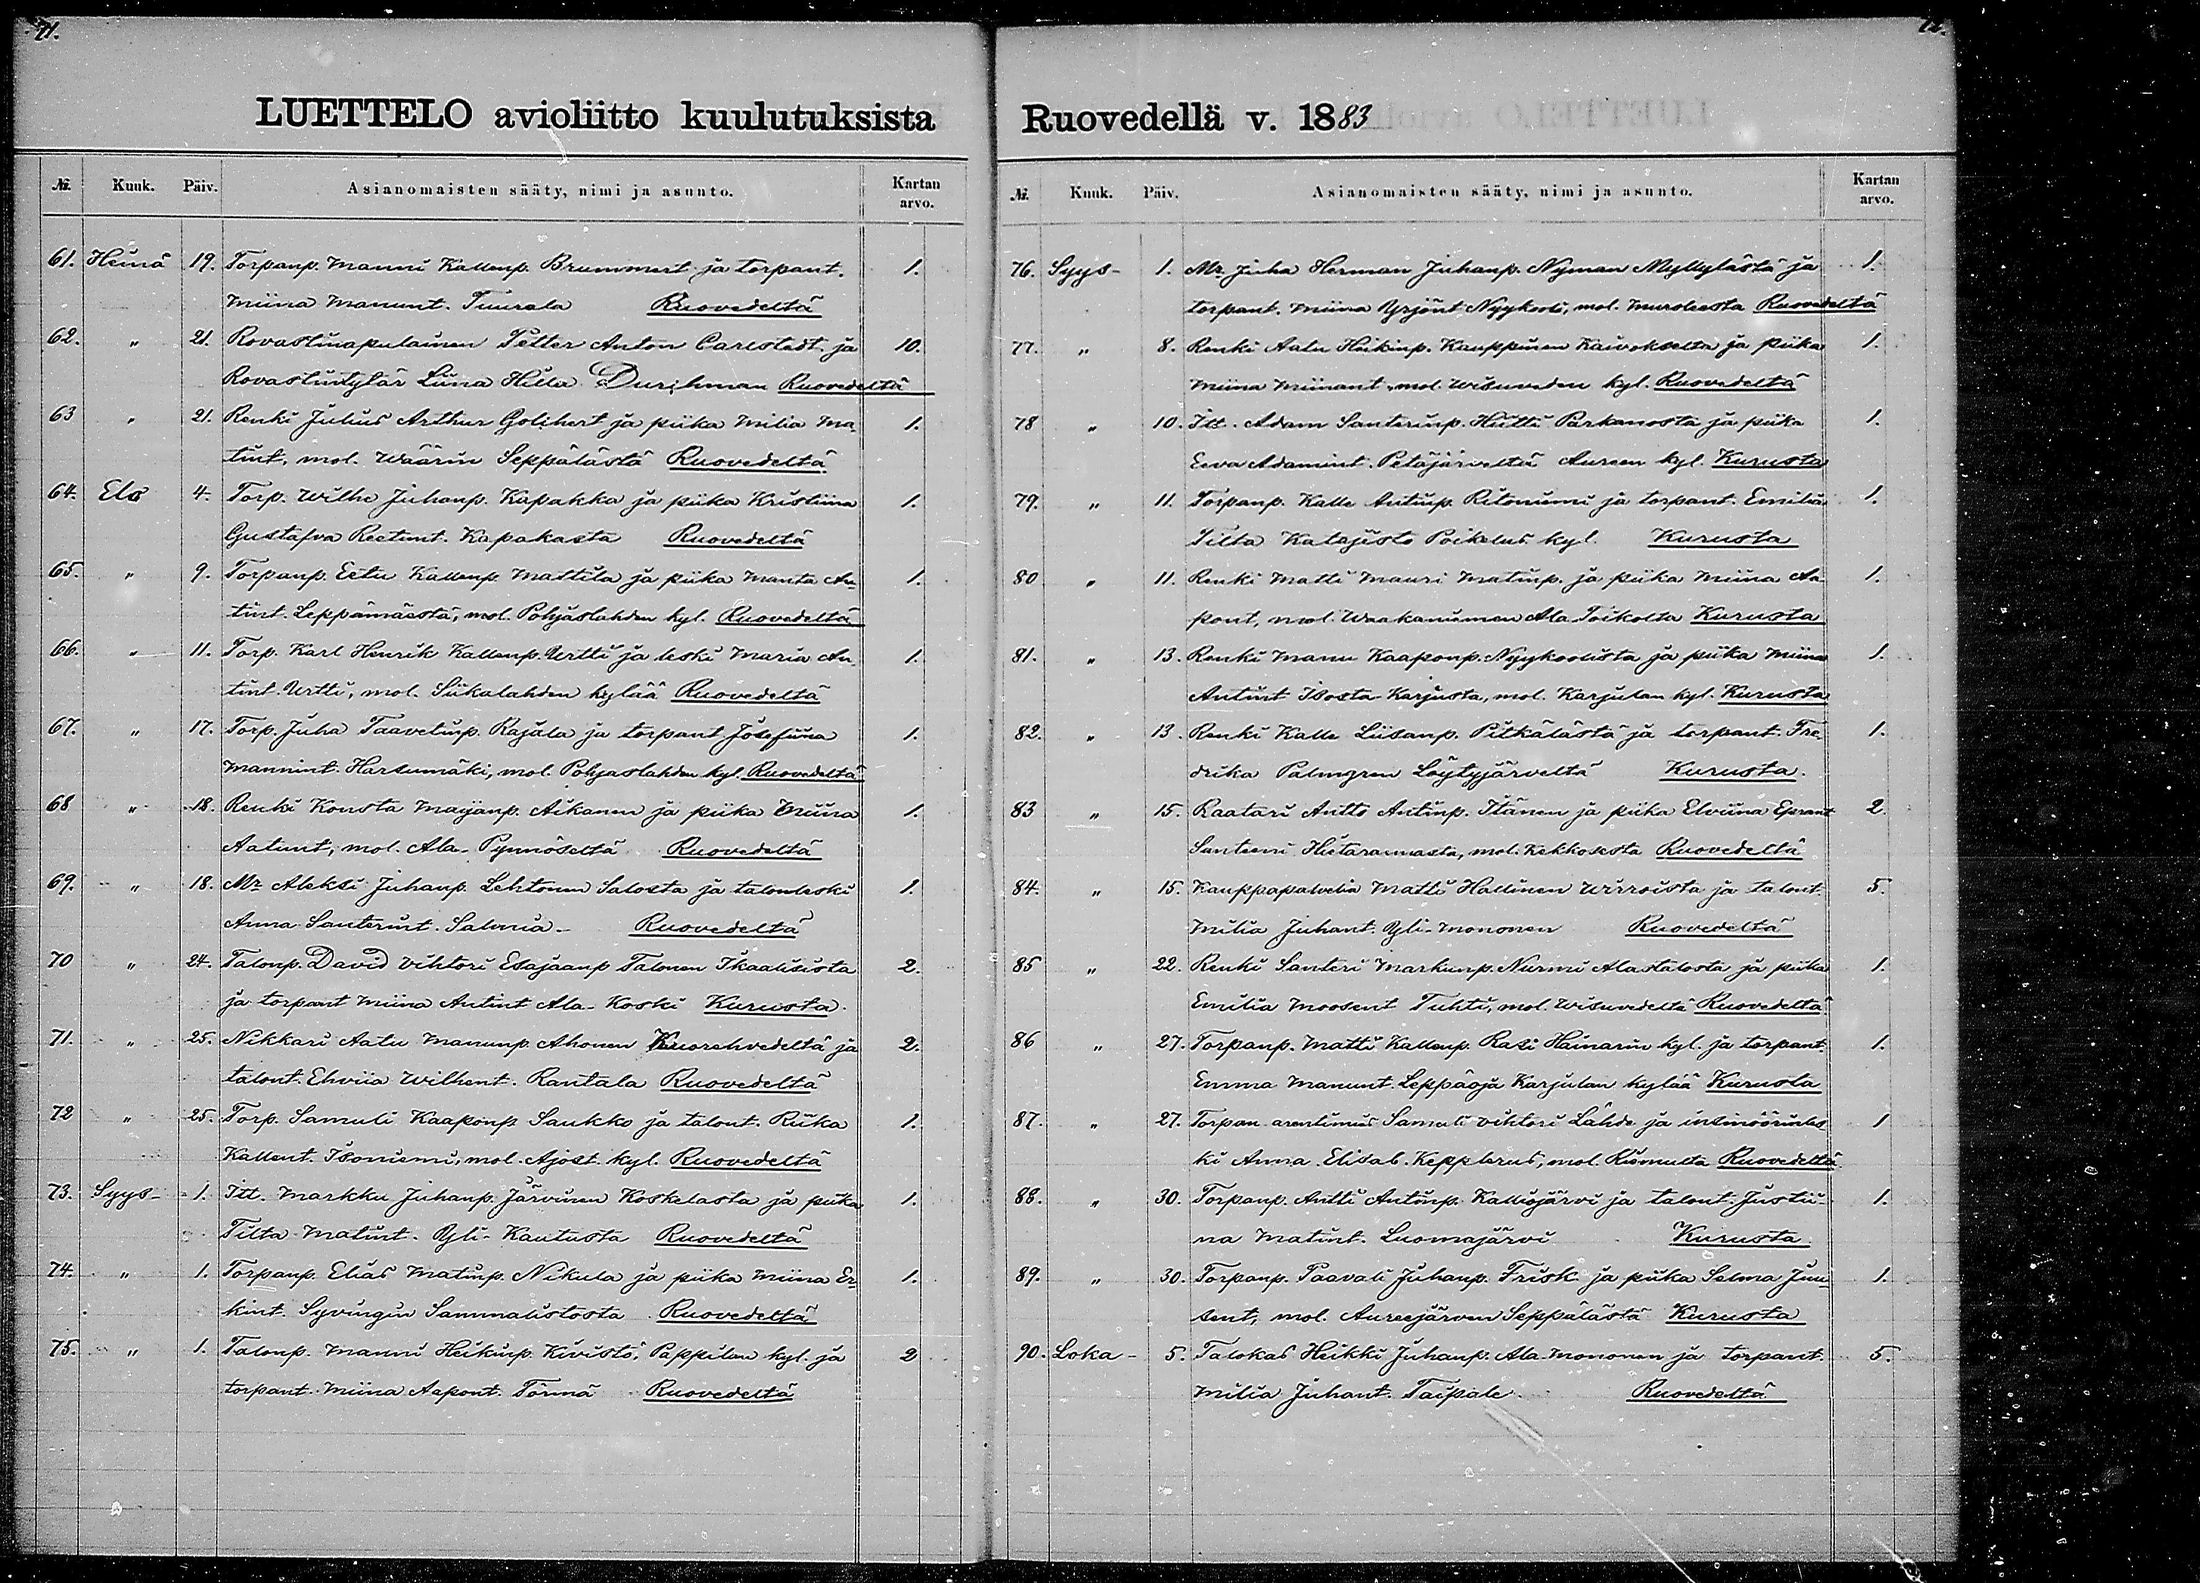 71.
LUETTELO avioliitto kuulutuksista
№. Kuuk. Päiv. Asianomaisten sääty, nimi ja asunto. Kartan arvo.
61. Heinä 19. Torpanp. Manni Kallenp. Brummert ja torpant. 1.
Miina Manunt. Tuurala Ruovedeltä
62. " 21. Rovastinapulainen Petter Anton Carlstedt ja 10.
Rovastintytär Liina Hilla Durchman Ruovedeltä
63 " 21. Renki Julius Arthur Golihert ja piika Milia Ma- 1.
tint, mol. Väärin Seppälästä Ruovedeltä
64. Elo 4. Torp. Wilhe Juhanp. Kapakka ja piika Kristiina 1.
Gustafva Reetint. Kapakasta Ruovedeltä
65. " 9. Torpanp. Eetu Kallenp. Mattila ja piika Manta An- 1.
tint. Leppämäestä, mol. Pohjaslahden kyl. Ruovedeltä
66. " 11. Torp. Karl Henrik Kallenp. Urtti ja leski Maria An- 1.
tint Urtti, mol. Siikalahden kylää Ruovedeltä
67. " 17. Torp. Juha Taavetinp. Rajala ja torpant Josefiina 1.
Mannint. Harsumäki, mol. Pohjaslahden kyl. Ruovedeltä
68 " 18. Renki Konsta Maijanp. Aikanen ja piika Miina 1.
Aatunt, mol. Ala-Pynnöseltä Ruovedeltä
69. " 18. Mr Aleksi Juhanp. Lehtonen Salosta ja talonleski 1.
Anna Santerint. Salonia Ruovedeltä
70 " 24. Talonp. David Vihtori Esajaanp Talonen Ikaalisista 2.
ja torpant Miina Antint Ala-Koski Kurusta.
71. " 25. Nikkari Aatu Manunp. Ahonen Kuorehvedeltä ja 2.
talont. Ehviia Wilhent. Rantala Ruovedeltä
72 " 25. Torp. Samuli Kaaponp Saukko ja talont. Riika 1.
Kallent. Isoniemi, mol. Ajost. kyl. Ruovedeltä
73. Syys- 1. Itt. Markku Juhanp. Järvinen Koskelasta ja piika 1.
Tilta Matint. Yli-Kautusta Ruovedeltä
74. " 1. Torpanp. Elias Matinp. Nikula ja piika Miina Er- 1.
kint. Syvingin Sammalistosta Ruovedeltä
75. " 1. Talonp. Manni Heikinp. Kivistö, Pappilan kyl. ja 2
torpant. Miina Aapont. Törmä Ruovedeltä
72.
Ruovedellä v. 1883
№. Kuuk. Päiv. Asianomaisten sääty, nimi ja asunto. Kartan arvo.
76. Syys- 1. Mr. Juha Herman Juhanp. Nyman Myllylästä ja 1.
torpant. Miina Yrjönt Nyykooli, mol. Muroleesta Ruovedeltä
77. " 8. Renki Aatu Heikinp. Kauppinen Kaivokselta ja piika 1.
Miina Miinant, mol. Wisuveden kyl. Ruovedeltä
78 " 10. Itt. Adam Santerinp. Hütti Parkanosta ja piika 1.
Eeva Adamint. Petäjärveltä Aureen kyl. Kurusta
79. " 11. Torpanp. Kalle Antinp. Ritoniemi ja torpant. Emilia 1.
Tilta Katajisto Poikelus kyl. Kurusta
80 " 11. Renki Matti Mauri Matinp. ja piika Miina Aa- 1.
pont, mol. Waakaniemen Ala Poikolta Kurusta
81. " 13. Renki Manu Kaaponp. Nyykoolista ja piika Miina 1.
Antint Isosta Karjusta, mol. Karjulan kyl. Kurusta
82. " 13. Renki Kalle Liisanp. Pitkälästä ja torpant. Fre- 1.
drika Palmgren Löytyjärveltä Kurusta.
83 " 15. Raatari Antto Antinp. Itänen ja piika Elviina Eprant 2.
Santeeni Hietarannasta, mol. Kekkosesta Ruovedeltä
84. " 15. Kauppapalvelia Matti Hallinen Wirroista ja talont. 5.
Milia Juhant. Yli-Mononen Ruovedeltä
85 " 22. Renki Santeri Markunp. Nurmi Alastalosta ja piika 1.
Emilia Moosent Tuhti, mol. Wisuvedeltä Ruovedeltä
86 " 27. Torpanp. Matti Kallenp. Rasi Hainarin kyl. ja torpant. 1.
Emma Manunt. Leppäoja Karjulan kylää Kurusta
87. " 27. Torpan arentimies Samuli Vihtori Lähde ja insinöörinles 1
ki Anna Elisab. Kepplerus, mol. Ruovedeltä
88. " 30. Torpanp. Antti Antinp. Kalliojärvi ja talont. Justii- 1.
na Matint. Luomajärvi Kurusta.
89. " 30. Torpanp. Paavali Juhanp. Frisk ja piika Selma Juu- 1.
sent, mol. Aureejärven Seppälästä Kurusta
90. Loka- 5. Talokas Heikki Juhanp. Ala-Mononen ja torpant. 5.
Milia Juhant. Taipale. Ruovedeltä